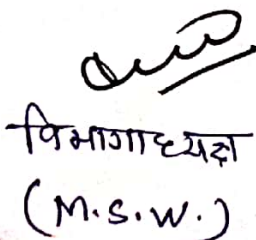 विभागाध्यक्ष
(M.S.W.)